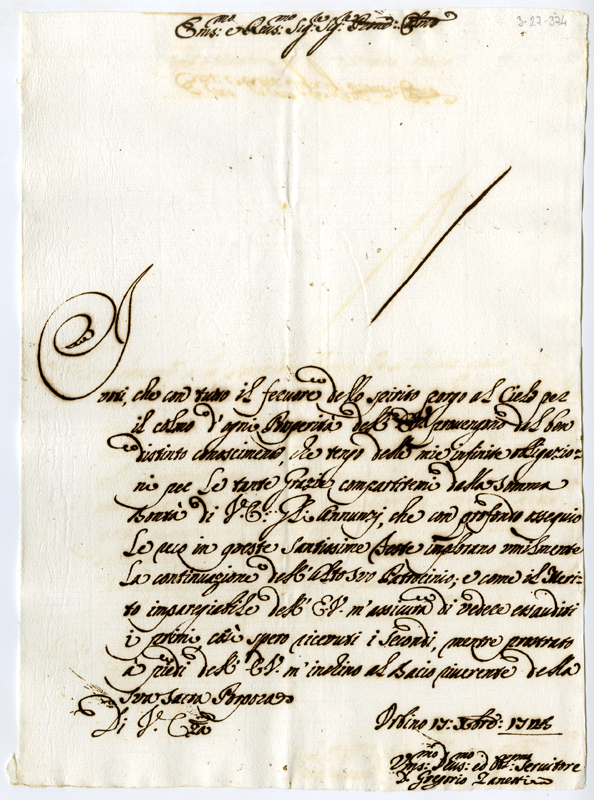 3-27-374
Em:mo e Reu:mo Sig:re Sig:r Pron: 
I
voti, che con tutto il feruore dello spirito porgo al Cielo per
il colmo d'ogni Prosperità dell' E.V. provengono dal ben
distinto conoscimento, che tengo delle mie infinite obligazio-
ni per le tante Grazie compartitemi dalla somma
Bontà di V.E. Gl' Annunzj, che con profondo ossequio
Le reco in queste Santissime Feste implorano umilmente
la continuazione dell' Alto suo Patrocinio; e come il Meri-
to impareggiabile dell' E.V. m'assicura di vedere esauditi
i primi, così spero ricevuti i Secondi, mentre prostrato
à piedi dell' E.V. m'inclino al Bacio riverente della
Sua Sacra Porpora
Di V. E.za
Urbino 13: Xbre:
Um:mo Deu:mo ed Obl:mo Servitore
D. Gregorio Zanetti